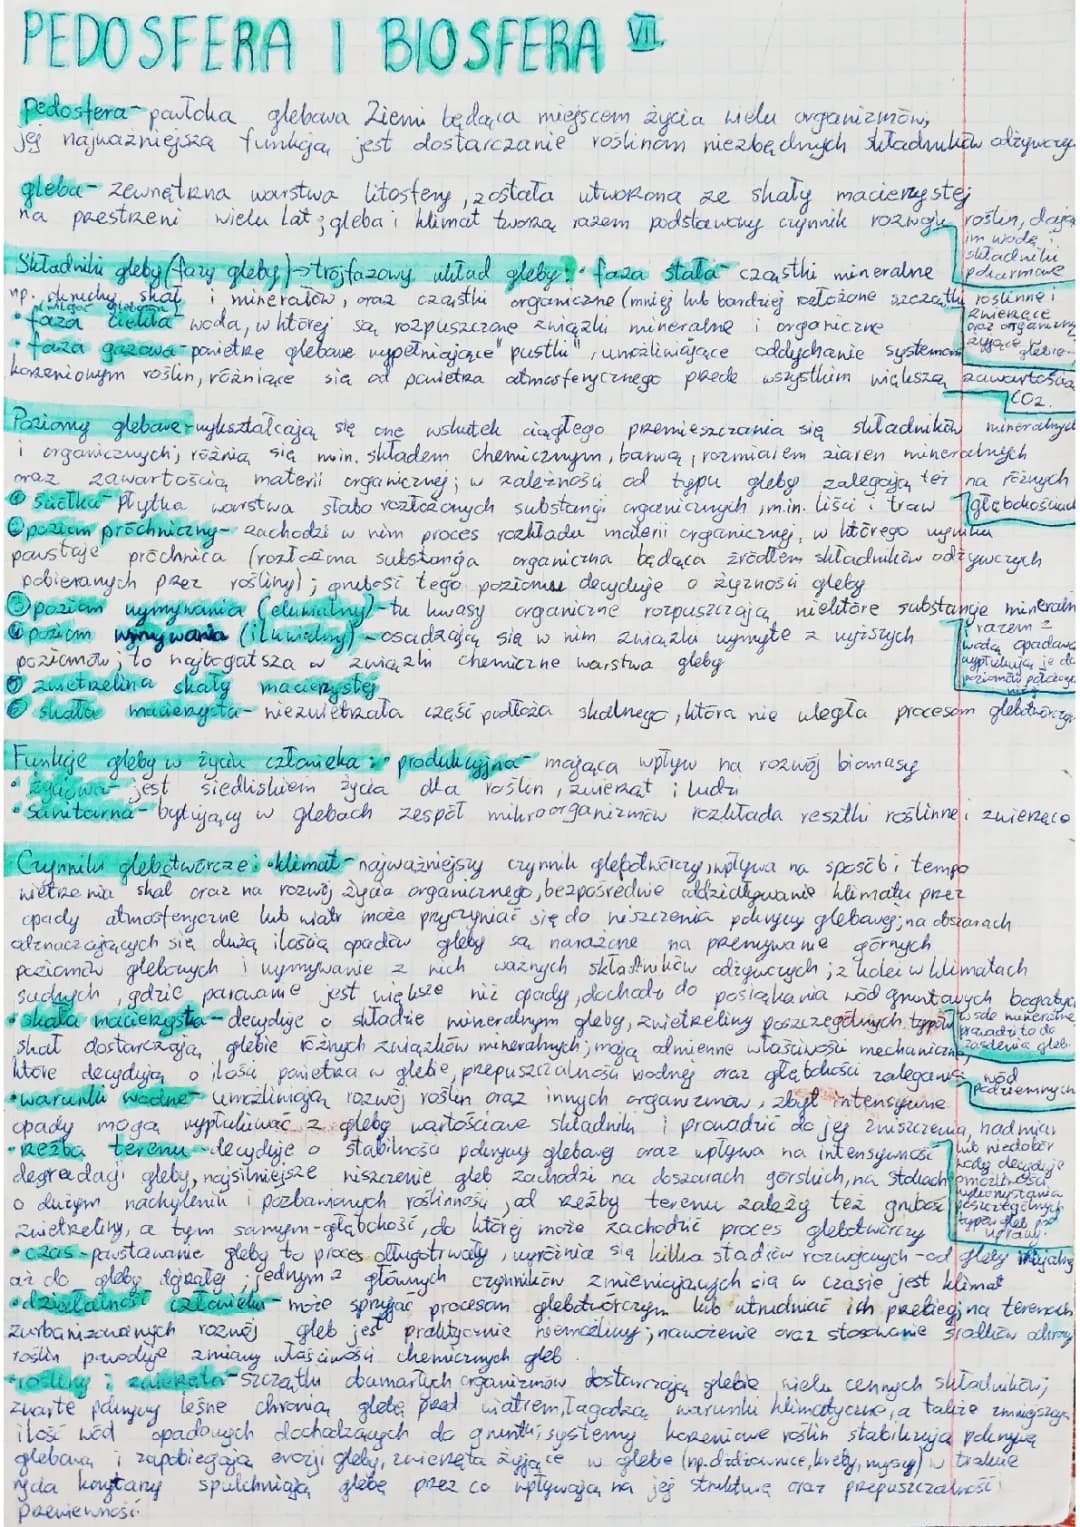 PEDOSFERA I BIOSFERA VII.
pedosfera - powłoka glebowa Ziemi będąca miejscem życia wielu organizmów;
jej najważniejszą funkcją jest dostarczanie roślinom niezbędnych składników odżywczych
gleba - zewnętrzna warstwa litosfery, została utworzona ze skały macierzystej
na przestrzeni wielu lat; gleba i klimat tworzą razem podstawowy czynnik rozwoju
roślin, dając
im wodę i
składniki
pokarmowe
Składniki gleby (fazy gleby) → trójfazowy układ gleby: • faza stała - cząstki mineralne
np. okruchy skał i minerałów, oraz cząstki organiczne (mniej lub bardziej rozłożone szczątki roślinne i
zwierzęce
oraz organizmy
żyjące w
glebie
• faza ciekła - woda, w której są rozpuszczone związki mineralne i organiczne
• faza gazowa - powietrze glebowe wypełniające "pustki", umożliwiające oddychanie systemom
korzeniowym roślin, różniące się od powietrza atmosferycznego przede wszystkim większą zawartością
CO2.
Poziomy glebowe - wykształcają się one wskutek ciągłego przemieszczania się składników mineralnych
i organicznych; różnią się m.in. składem chemicznym, barwą, rozmiarem ziaren mineralnych
oraz zawartością materii organicznej; w zależności od typu gleby zalegają też na różnych
głębokościach
① ściółka - płytka warstwa słabo rozłożonych substancji organicznych, m.in. liści i traw
② poziom próchniczny - zachodzi w nim proces rozkładu materii organicznej, w którego wyniku
powstaje próchnica (rozłożona substancja organiczna będąca źródłem składników odżywczych
pobieranych przez rośliny); grubość tego poziomu decyduje o żyzności gleby
③ poziom wymywania (eluwialny) - tu kwasy organiczne rozpuszczają niektóre substancje mineralne
i razem z
wodą opadową
wypłukują je do
poziomów położonych
niżej
④ poziom wmywania (iluwialny) - osadzają się w nim związki wymyte z wyższych
poziomów; to najbogatsza w związki chemiczne warstwa gleby
⑤ zwietrzelina skały macierzystej
⑥ skała macierzysta - niezwietrzała część podłoża skalnego, która nie uległa procesom glebotwórczym
Funkcje gleby w życiu człowieka: • produkcyjna - mająca wpływ na rozwój biomasy
• żyjowa - jest siedliskiem życia dla roślin, zwierząt i ludzi
• sanitarna - bytujący w glebach zespół mikroorganizmów rozkłada resztki roślinne i zwierzęce
Czynniki glebotwórcze: • klimat - najważniejszy czynnik glebotwórczy, wpływa na sposób i tempo
wietrzenia skał oraz na rozwój życia organicznego, bezpośrednie oddziaływanie klimatu przez
opady atmosferyczne lub wiatr może przyczyniać się do niszczenia pokrywy glebowej; na obszarach
odznaczających się dużą ilością opadów gleby są narażone na przemywanie górnych
poziomów glebowych i wymywanie z nich ważnych składników odżywczych; z kolei w klimatach
suchych, gdzie parowanie jest większe niż opady, dochodzi do podsiąkania wód gruntowych bogatych
w sole mineralne,
prowadzi to do
zasolenia gleb
• skała macierzysta - decyduje o składzie mineralnym gleby, zwietrzeliny poszczególnych typów
skał dostarczają glebie różnych związków mineralnych; mają odmienne właściwości mechaniczne,
które decydują o ilości powietrza w glebie, przepuszczalności wodnej oraz głębokości zalegania wód
podziemnych
• warunki wodne - umożliwiają rozwój roślin oraz innych organizmów, zbyt intensywne
opady mogą wypłukiwać z gleby wartościowe składniki i prowadzić do jej zniszczenia, nadmiar
lub niedobór
wody decyduje
o możliwości
wykorzystania
poszczególnych
typów gleb pod
uprawy.
• rzeźba terenu - decyduje o stabilności pokrywy glebowej oraz wpływa na intensywność
degradacji gleby, najsilniejsze niszczenie gleb zachodzi na obszarach górskich, na stokach
o dużym nachyleniu i pozbawionych roślinności, od rzeźby terenu zależy też grubość
zwietrzeliny, a tym samym - głębokość, do której może zachodzić proces glebotwórczy
• czas - powstawanie gleby to proces długotrwały, wyróżnia się kilka stadiów rozwojowych - od gleby inicjalnej
aż do gleby dojrzałej; jednym z głównych czynników zmieniających się w czasie jest klimat
• działalność człowieka - może sprzyjać procesom glebotwórczym lub utrudniać ich przebieg; na terenach
zurbanizowanych rozwój gleb jest praktycznie niemożliwy; nawożenie oraz stosowanie środków ochrony
roślin powoduje zmiany właściwości chemicznych gleb.
• rośliny i zwierzęta - szczątki obumarłych organizmów dostarczają glebie wielu cennych składników;
zwarte pokrywy leśne chronią glebę przed wiatrem, łagodzą warunki klimatyczne, a także zmniejszają
ilość wód opadowych dochodzących do gruntu; systemy korzeniowe roślin stabilizują pokrywę
glebową i zapobiegają erozji gleby, zwierzęta żyjące w glebie (np. dżdżownice, krety, myszy) w trakcie
rycia korytarzy spulchniają glebę przez co wpływają na jej strukturę oraz przepuszczalność i
przewiewność.